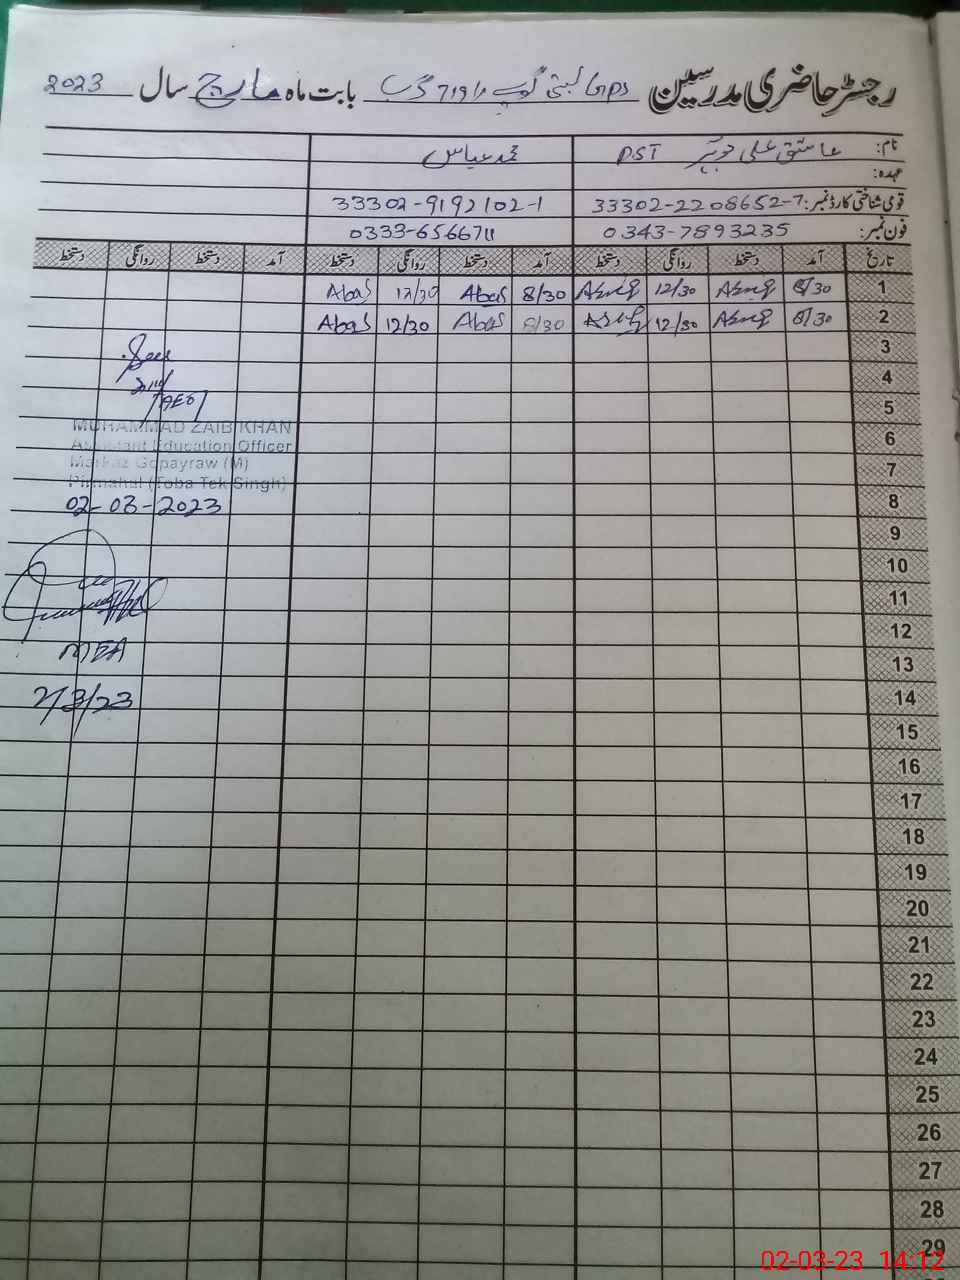 رجسٹر حاضری مدرسین GPS بستی گوپے راؤ 719 گ ب بابت ماہ مارچ سال 2023
نام: عاشق علی جوہر PST محمد عباس
عہدہ:
قومی شناختی کارڈ نمبر: 33302-2208652-7 33302-9192102-1
فون نمبر: 0343-7893235 0333-6566711
تاریخ آمد دستخط روانگی دستخط آمد دستخط روانگی دستخط آمد دستخط روانگی دستخط
1 8/30 12/30 8/30 Abas 12/30 Abas
2 8/30 12/30 8/30 Abas 12/30 Abas
3
4
5
6
7
8
9
10
11
12
13
14
15
16
17
18
19
20
21
22
23
24
25
26
27
28
29
AEO
MUHAMMAD ZAIB KHAN
Assistant Education Officer
Markaz Gopayraw (M)
Pirmahal (Toba Tek Singh)
02-03-2023
MEA
2/3/23
02-03-23 14:12